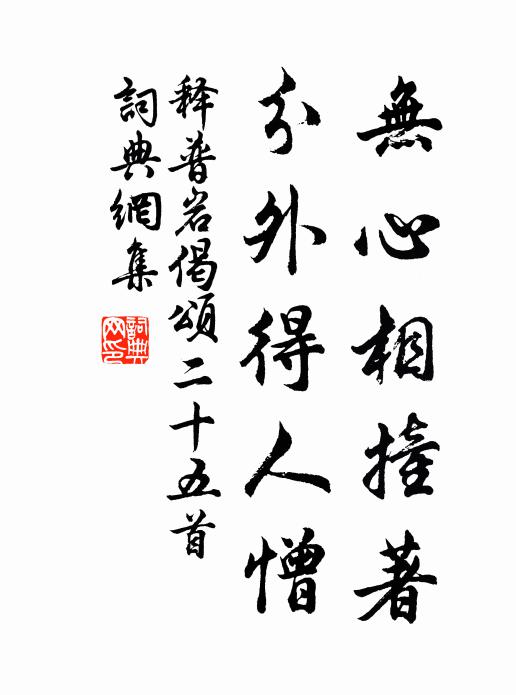 無心相撞著
分外得人憎
释普岩偈頌二十五首
詞典網集
詞典网印